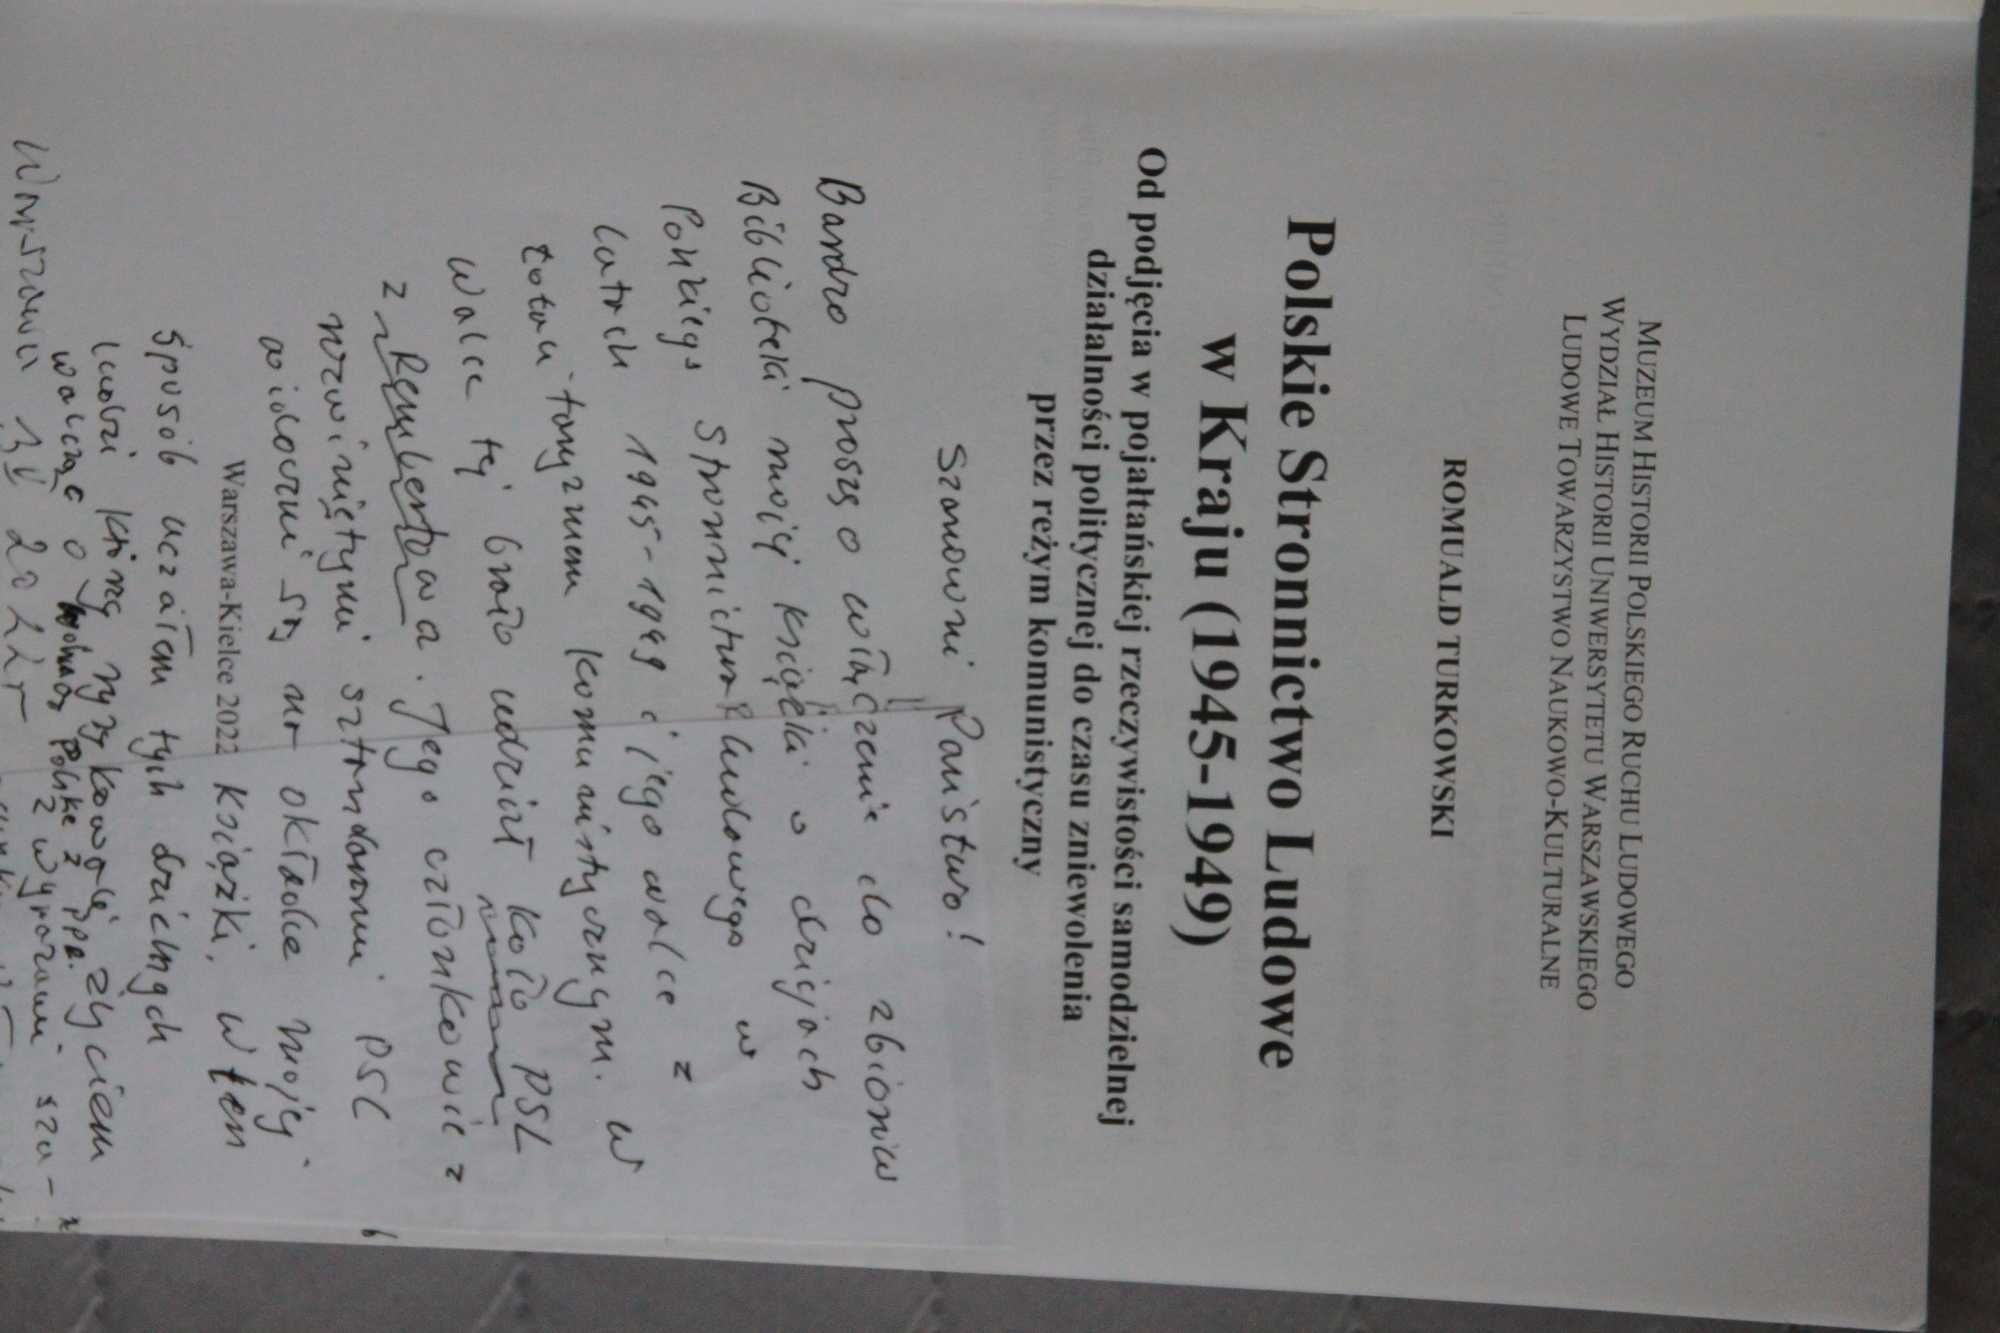 MUZEUM HISTORII POLSKIEGO RUCHU LUDOWEGO
WYDZIAŁ HISTORII UNIWERSYTETU WARSZAWSKIEGO
LUDOWE TOWARZYSTWO NAUKOWO-KULTURALNE
ROMUALD TURKOWSKI
Polskie Stronnictwo Ludowe
w Kraju (1945-1949)
Od podjęcia w pojałtańskiej rzeczywistości samodzielnej
działalności politycznej do czasu zniewolenia
przez reżym komunistyczny
Szanowni Państwo!
Bardzo proszę o włączenie do zbiorów
Biblioteki mojej książki o dziejach
Polskiego Stronnictwa Ludowego w
latach 1945-1949 i jego walce z
totalitaryzmem komunistycznym. W
walce tej brało udział koło PSL
z Rembertowa. Jego członkowie z
rozwiniętymi sztandarami PSL
widoczni są na okładce mojej
Warszawa-Kielce 2022
książki. W ten
sposób uczciłem tych dzielnych
ludzi którzy ryzykowali życiem
walcząc o wolną Polskę z PPR.
z wyrazami sza-
Warszawa 2022 r